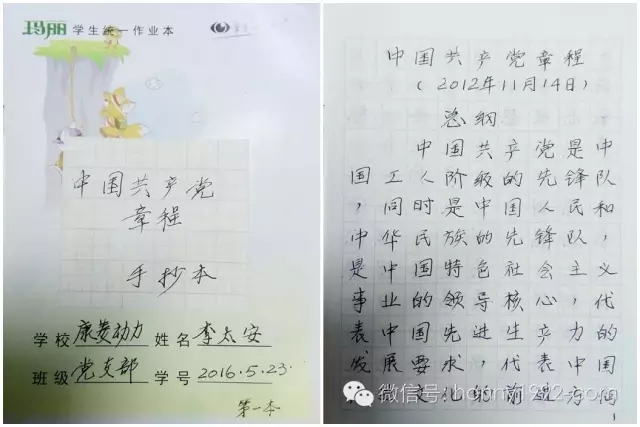 玛丽 学生统一作业本
中国共产党
章程
手抄本
学校 康菱动力 姓名 李太安
班级 党支部 学号 2016.5.23.
第一本
中国共产党章程
(2012年11月14日)
总纲
中国共产党是中
国工人阶级的先锋队
，同时是中国人民和
中华民族的先锋队，
是中国特色社会主义
事业的领导核心，代
表中国先进生产力的
发展要求，代表中国
文化的前进方向
微信号:
1